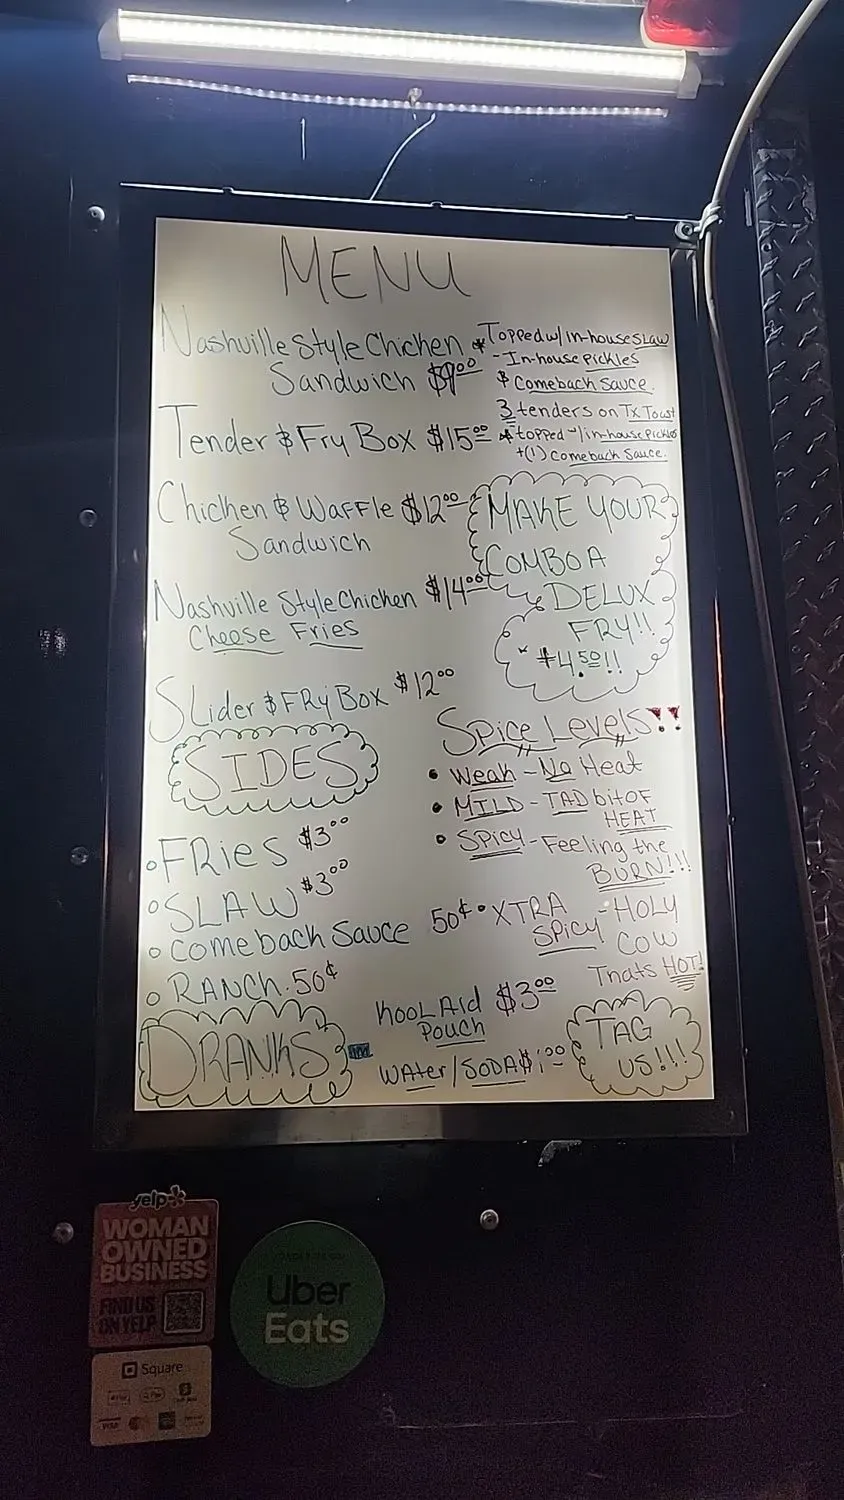 MENU
Nashville Style Chicken
Sandwich $9.00
* Topped w/ in-house SLAW
- In-house pickles
& Comeback Sauce.
Tender & Fry Box $15.00
3 tenders on Tx Toast
* topped w/ in-house pickles
+(1) Comeback Sauce.
Chicken & Waffle $12.00
Sandwich
MAKE YOUR
COMBO A
DELUX
FRY!!
$4.50!!
Nashville Style Chicken $14.00
Cheese Fries
Slider & FRy Box $12.00
SIDES
Spice Levels!!
• Weak - No Heat
• MILD - TAD bit OF
HEAT
• SPICY - Feeling the
BURN!!!
• XTRA - HOLY
SPICY COW
Thats HOT!
• FRies $3.00
• SLAW $3.00
• Comeback Sauce 50¢
• RANCH. 50¢
DRANKS
KOOL AID $3.00
Pouch
WAter/SODA $1.00
TAG
US!!!
yelp
WOMAN
OWNED
BUSINESS
FIND US
ON YELP
Uber
Eats
Square
VISA